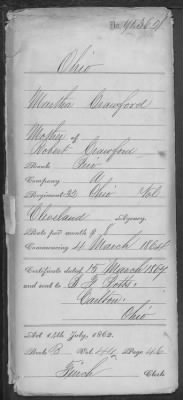 No. 41,364
Ohio
Martha Crawford
Mother of
Robert Crawford
Rank Priv
Company A,
Regiment 32 Ohio Vol
Cleveland Agency.
Rate per month $ 8
Commencing 4 March 1864
Certificate dated 15 March 1867
and sent to
Ohio
Act 14th July, 1862.
Book B Vol. 44 Page 46
Finch Clerk